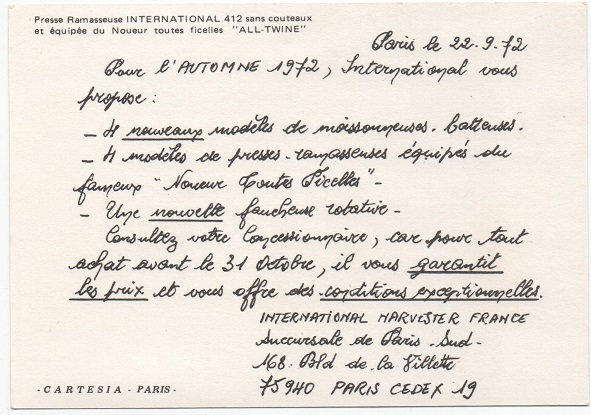 Presse Ramasseuse INTERNATIONAL 412 sans couteaux
et équipée du Noueur toutes ficelles "ALL-TWINE"
Paris le 22.9.72
Pour l'AUTOMNE 1972, International vous
propose :
- 4 nouveaux modèles de moissonneuses-batteuses.
- 4 modèles de presses-ramasseuses équipés du
fameux "Noueur Toutes Ficelles"-
- Une nouvelle faucheuse rotative-
Consultez votre Concessionnaire, car pour tout
achat avant le 31 Octobre, il vous garantit
les prix et vous offre des conditions exceptionnelles.
INTERNATIONAL HARVESTER FRANCE
Succursale de Paris-Sud-
168. Bld de la Villette
75940 PARIS CEDEX 19
- CARTESIA - PARIS -